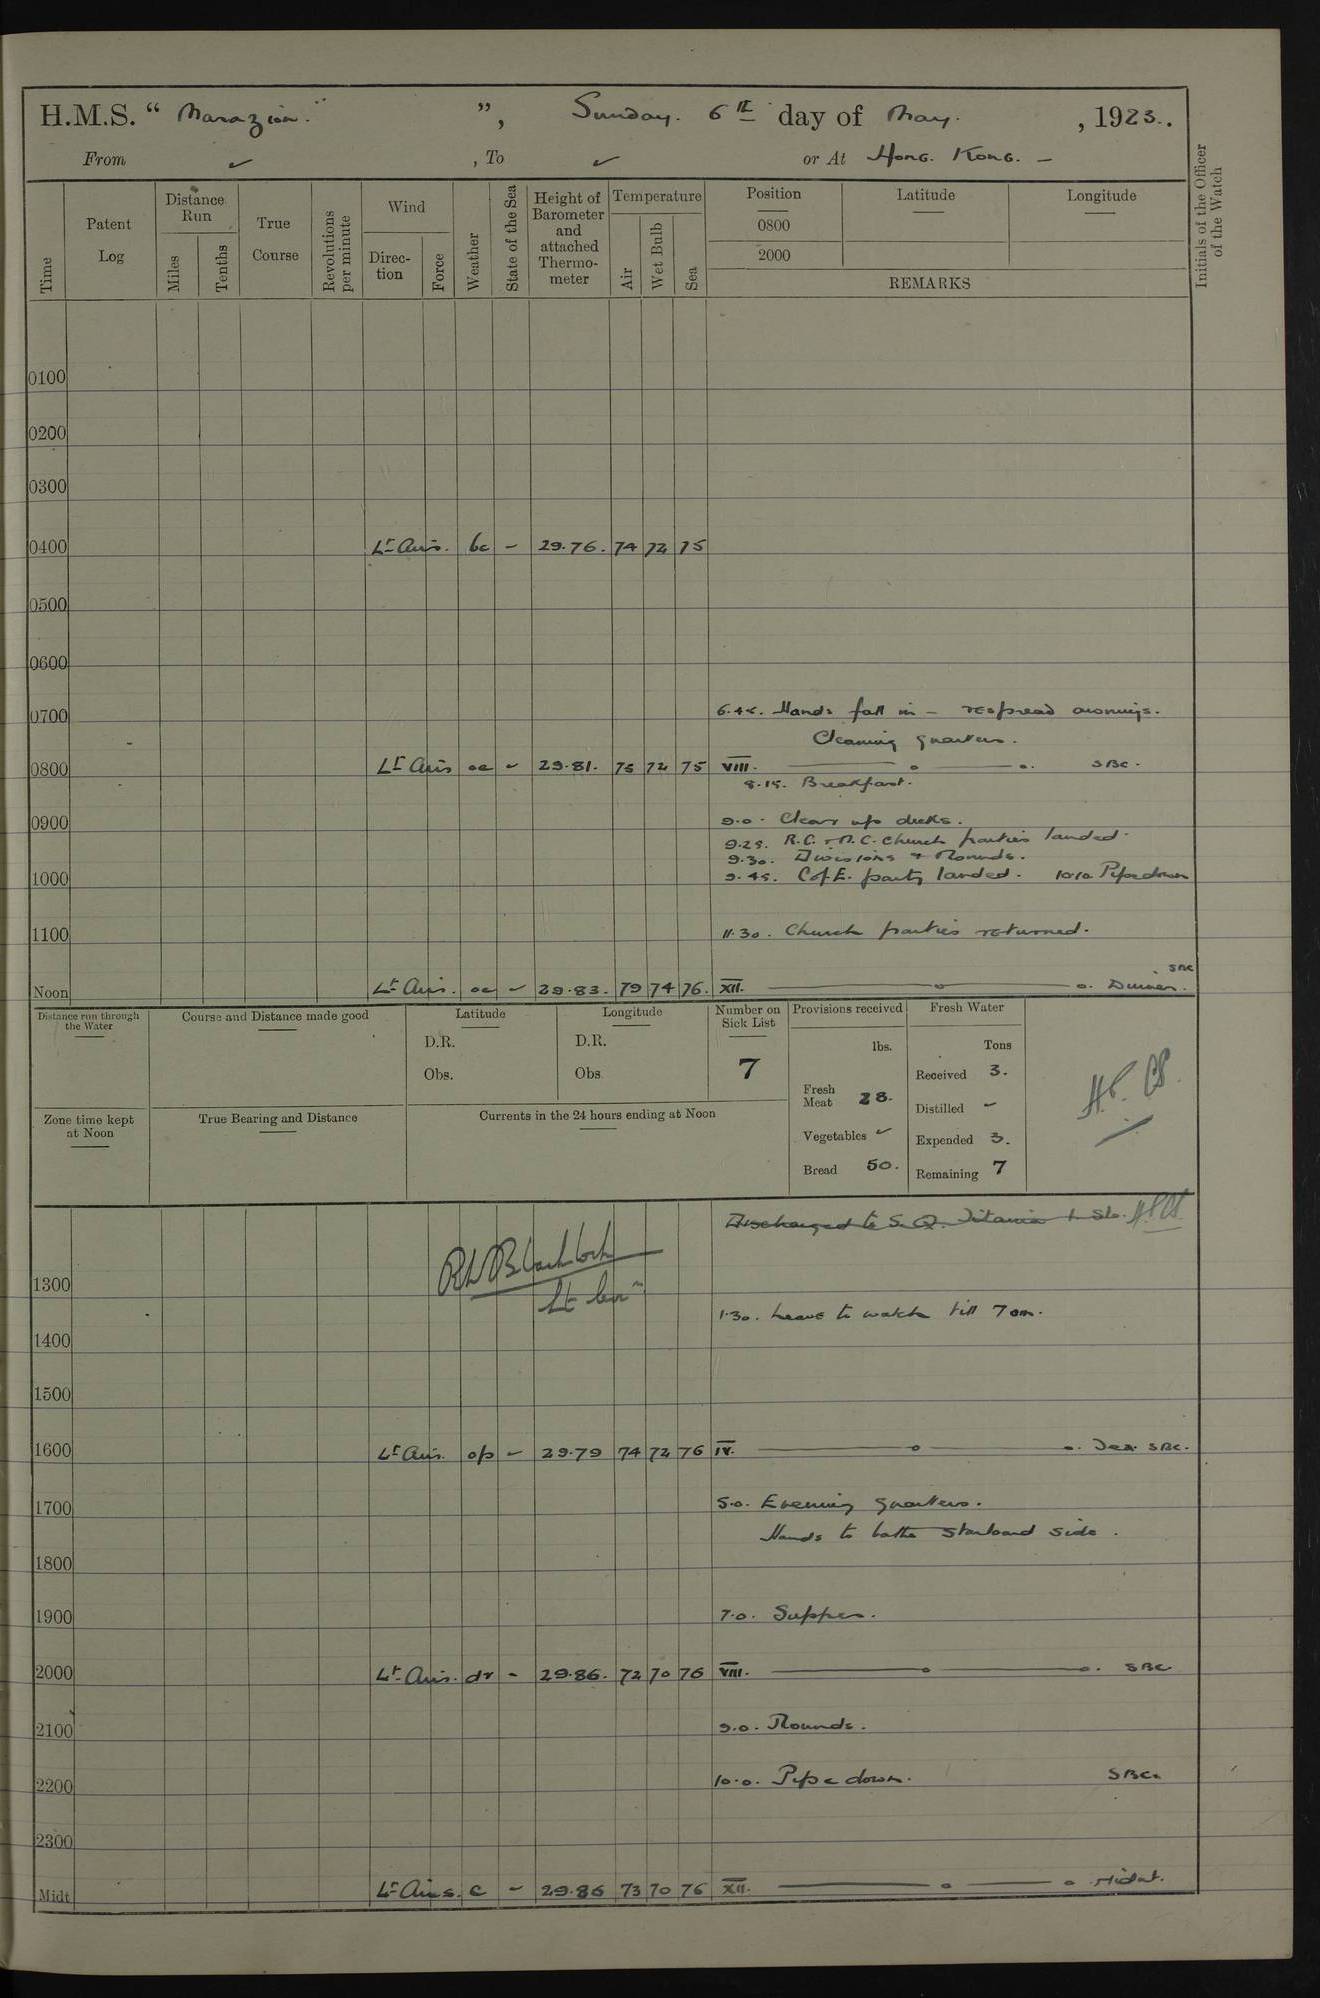 H.M.S. “ Marazion. ”, Sunday. 6th day of May. , 1923.
From ✓ , To ✓ or At Hong. Kong. –
Time
Patent Log
Distance Run
Miles
Tenths
True Course
Revolutions per minute
Wind
Direction
Force
Weather
State of the Sea
Height of Barometer and attached Thermometer
Temperature
Air
Wet Bulb
Sea
Position
0800
2000
Latitude
Longitude
REMARKS
Initials of the Officer of the Watch
0100
0200
0300
0400 Lt Airs. bc – 29.76. 74 72 75
0500
0600
0700 6.45. Hands fall in – respread awnings.
Cleaning quarters.
0800 Lt Airs oc ✓ 29.81. 75 72 75 VIII. o o. SBC.
8.15. Breakfast.
0900 9.0. Clear up decks.
9.25. R.C. & N.C. Church parties landed.
9.30. Divisions & Rounds.
1000 9.45. C of E. party landed. 10.10 Pipe down
1100 11.30. Church parties returned.
SBC
Noon Lt Airs. oc ✓ 29.83. 79 74 76. XII. o o. Dinner.
Distance run through the Water
Course and Distance made good
Latitude
D.R.
Obs.
Longitude
D.R.
Obs
Number on Sick List
7
Provisions received
lbs.
Fresh Meat 28.
Vegetables ✓
Bread 50.
Fresh Water
Tons
Received 3.
Distilled –
Expended 3.
Remaining 7
Zone time kept at Noon
True Bearing and Distance
Currents in the 24 hours ending at Noon
Discharged to S.Q. Titania 1. Sto.
Lt Comr
1300
1.30. Leave to watch till 7 am.
1400
1500
1600 Lt Airs. op ✓ 29.79 74 72 76 IV. o o. Tea. SBC.
1700 5.0. Evening quarters.
Hands to bathe starboard side.
1800
1900 7.0. Supper.
2000 Lt Airs. dr – 29.86. 72 70 76 VIII. o o. SBC
2100 9.0. Rounds.
2200 10.0. Pipe down. SBC.
2300
Midt Lt Airs. c – 29.86 73 70 76 XII. o o Midnt.